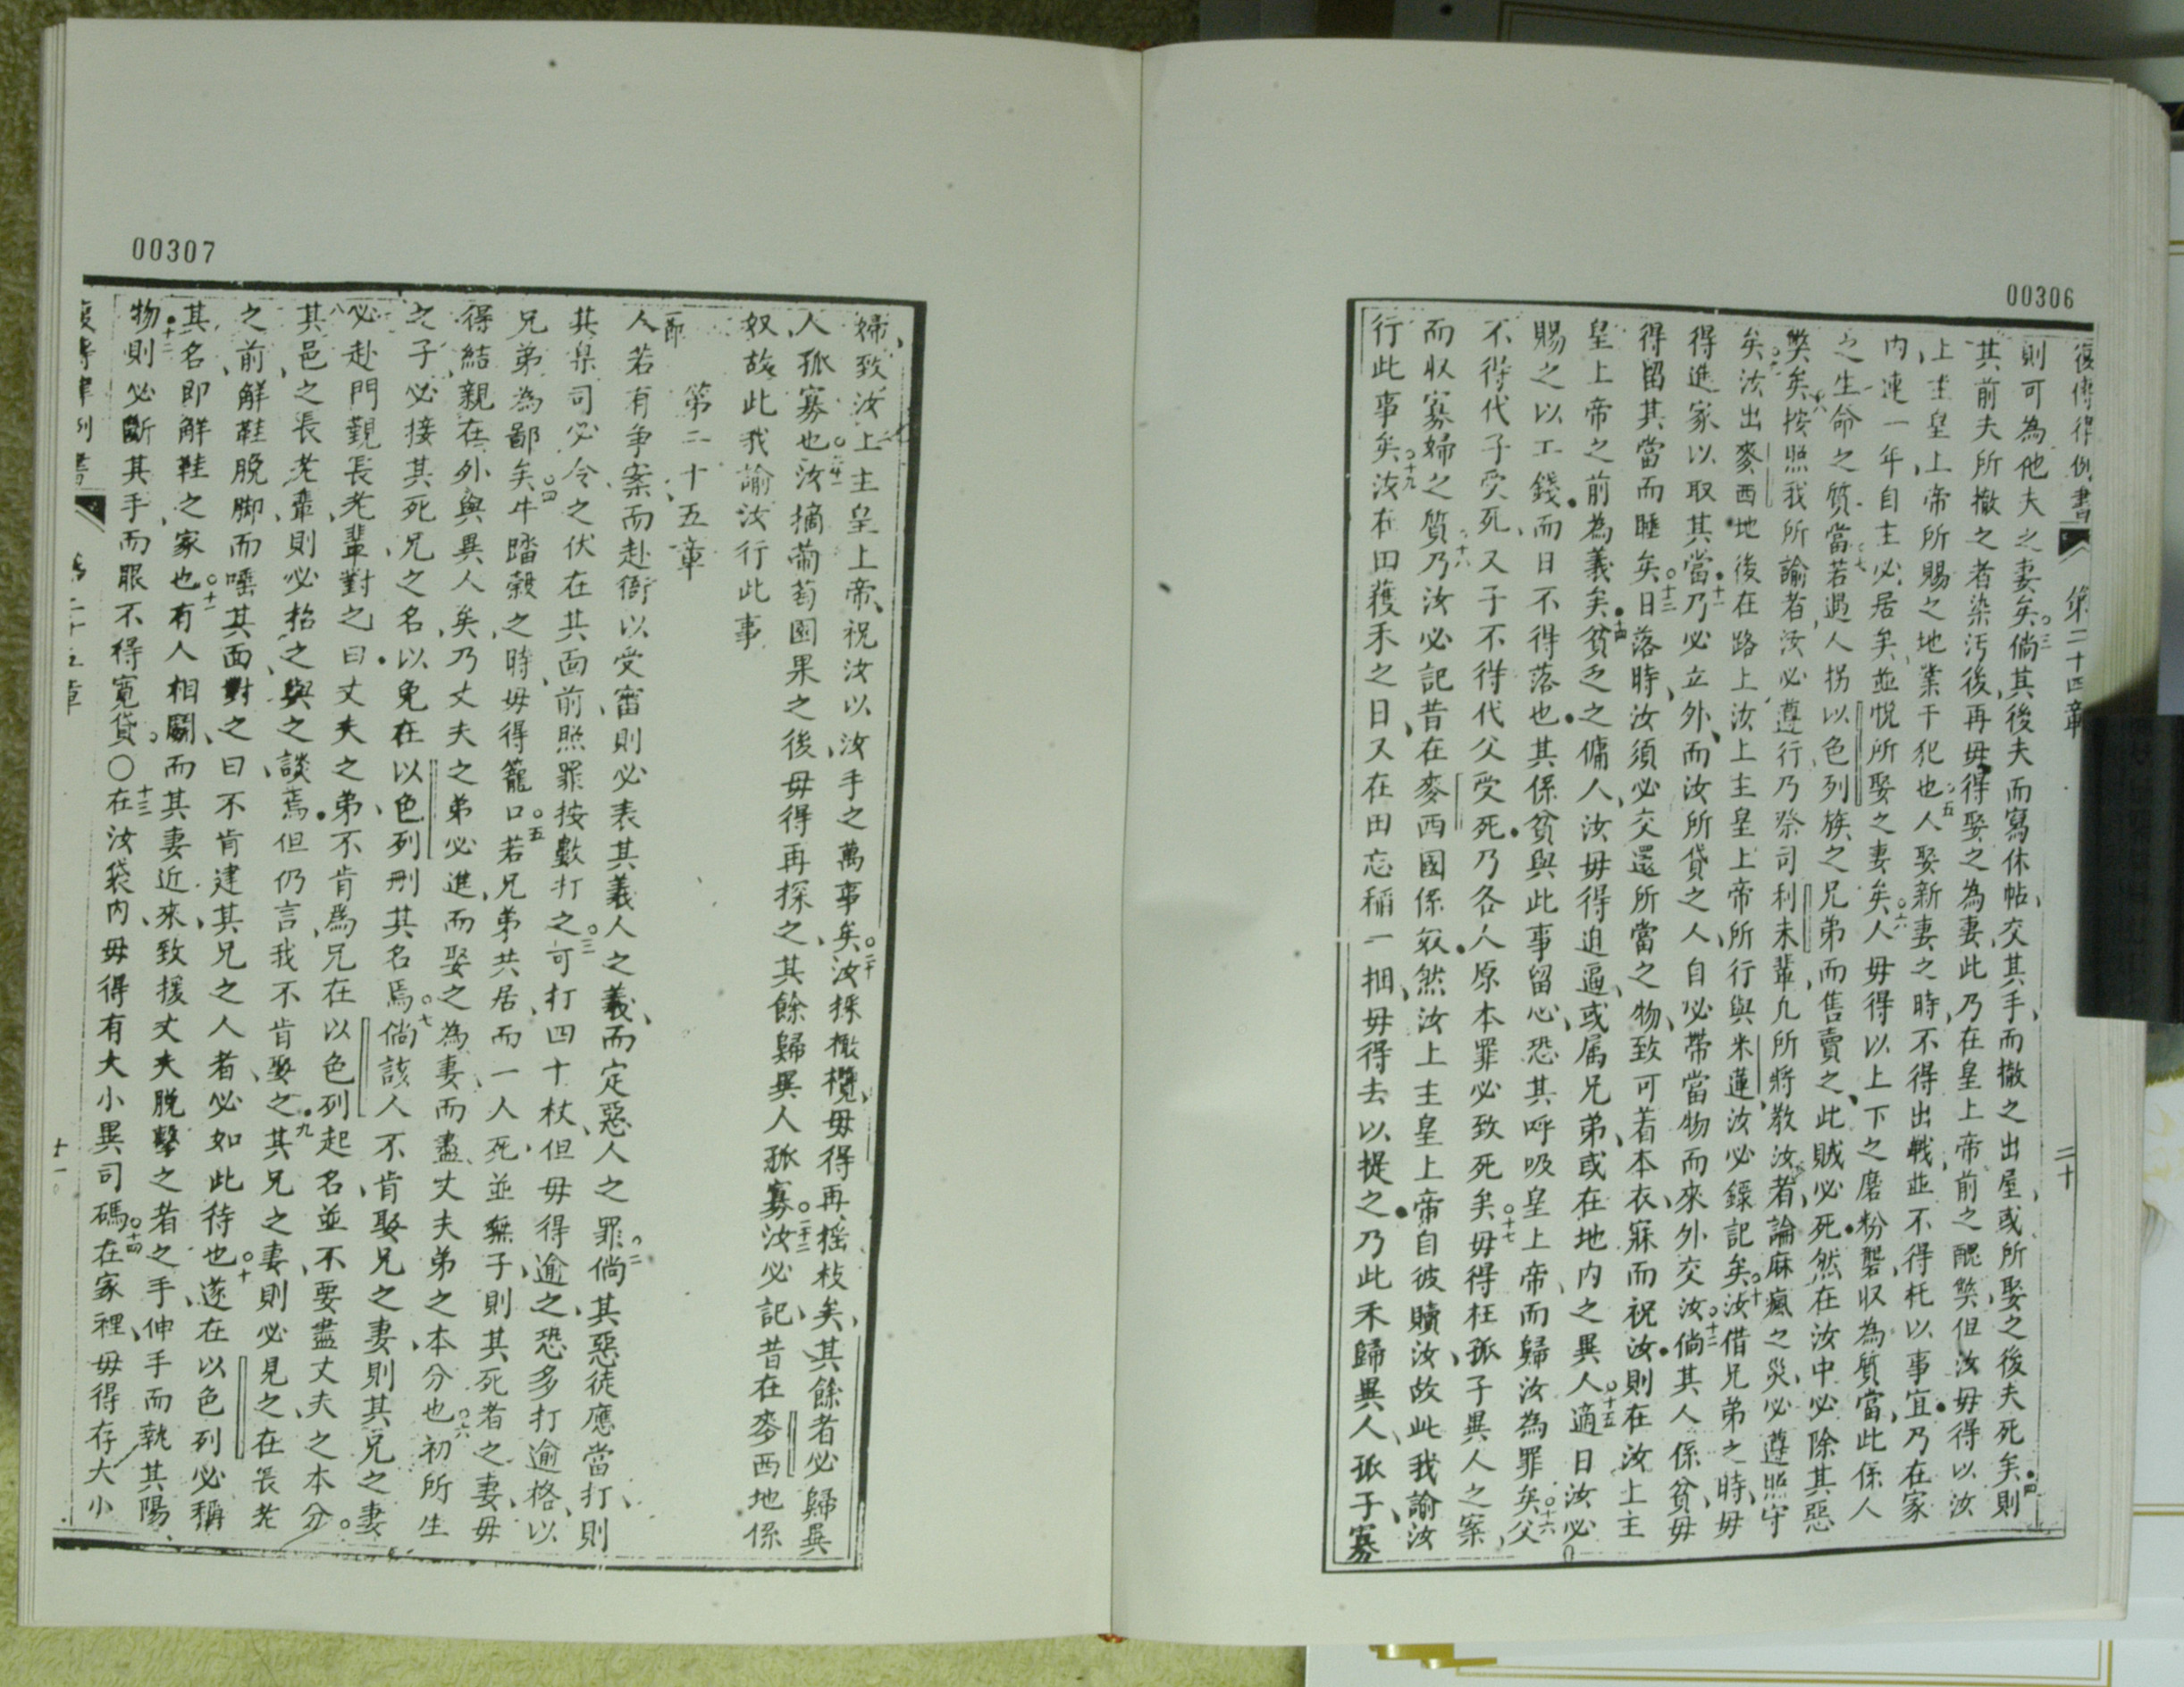 00306
復傳律例書 第二十四章 二十
則可為他夫之妻矣○三倘其後夫而寫休帖交其手而撤之出屋或所娶之後夫死矣○四則
其前夫所撤之者染污後再毋得娶之為妻此乃在皇上帝前之醜獘但汝毋得以汝
上主皇上帝所賜之地業干犯也○五人娶新妻之時不得出戰並不得托以事宜乃在家
內連一年自主必居矣並悅所娶之妻矣○六人毋得以上下之磨粉礱収為質當此係人
之生命之質當○七若遇人拐以色列族之兄弟而售賣之此賊必死然在汝中必除其惡
獘矣○八按照我所諭者汝必遵行乃祭司利未輩凡所將教汝者論麻瘋之災必遵照守
矣○九汝出麥西地後在路上汝上主皇上帝所行與米蓮汝必錄記矣○十汝借兄弟之時毋
得進家以取其當○十一乃必立外而汝所貸之人自必帶當物而來外交汝○十二倘其人係貧毋
得留其當而睡矣○十三日落時汝須必交還所當之物致可着本衣寐而祝汝則在汝上主
皇上帝之前為義矣○十四貧乏之傭人汝毋得迫逼或属兄弟或在地內之異人○十五適日汝必
賜之以工錢而日不得落也其係貧與此事留心恐其呼吸皇上帝而歸汝為罪矣○十六父
不得代子受死又子不得代父受死乃各人原本罪必致死矣○十七毋得枉孤子異人之案
而収寡婦之質○十八乃汝必記昔在麥西國係奴然汝上主皇上帝自彼贖汝故此我諭汝
行此事矣○十九汝在田穫禾之日又在田忘稇一捆毋得去以提之乃此禾歸異人孤子寡
00307
婦致汝上主皇上帝祝汝以汝手之萬事矣○二十汝採橄欖毋得再摇枝矣其餘者必歸異
人孤寡也○二十一汝摘葡萄園果之後毋得再探之其餘歸異人孤寡○二十二汝必記昔在麥西地係
奴故此我諭汝行此事
節 第二十五章
人若有争案而赴衙以受審則必表其義人之義而定惡人之罪○二倘其惡徒應當打則
其臬司必令之伏在其面前照罪按數打之○三可打四十杖但毋得逾之恐多打逾格以
兄弟為鄙矣○四牛踏穀之時毋得籠口○五若兄弟共居而一人死並無子則其死者之妻毋
得結親在外與異人矣乃丈夫之弟必進而娶之為妻而盡丈夫弟之本分也○六初所生
之子必接其死兄之名以免在以色列刑其名焉○七倘該人不肯娶兄之妻則其兄之妻
必赴門觐長老輩對之曰丈夫之弟不肯為兄在以色列起名並不要盡丈夫之本分○
八其邑之長老輩則必招之與之談焉但仍言我不肯娶之○九其兄之妻則必見之在長老
之前解鞋脫脚而唾其面對之曰不肯建其兄之人者必如此待也○十遂在以色列必稱
其名即解鞋之家也○十一有人相鬬而其妻近來致援丈夫脫擊之者之手伸手而執其陽
物○十二則必斷其手而眼不得寬貸○○十三在汝袋內毋得有大小異司碼○十四在家裡毋得存大小
復傳律例書 第二十五章